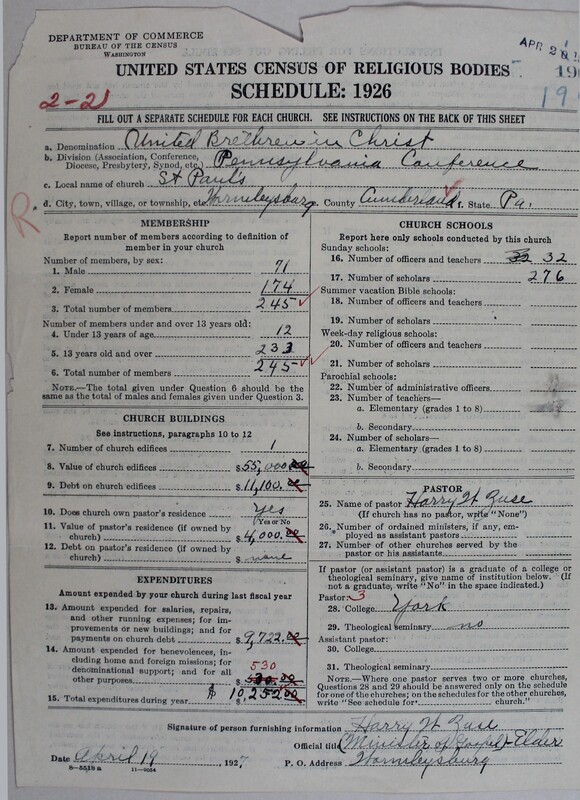 DEPARTMENT OF COMMERCE
BUREAU OF THE CENSUS
WASHINGTON
APR 2
UNITED STATES CENSUS OF RELIGIOUS BODIES
SCHEDULE: 1926
2-21
FILL OUT A SEPARATE SCHEDULE FOR EACH CHURCH. SEE INSTRUCTIONS ON THE BACK OF THIS SHEET
a. Denomination United Brethren in Christ
b. Division (Association, Conference, Diocese, Presbytery, Synod, etc.) Pennsylvania Conference
c. Local name of church St Paul's
R. d. City, town, village, or township, etc. Wormleysburg County Cumberland State Pa.
MEMBERSHIP
Report number of members according to definition of member in your church
Number of members, by sex:
1. Male 71
2. Female 174
3. Total number of members 245
Number of members under and over 13 years old:
4. Under 13 years of age 12
5. 13 years old and over 233
6. Total number of members 245
NOTE.—The total given under Question 6 should be the same as the total of males and females given under Question 3.
CHURCH BUILDINGS
See instructions, paragraphs 10 to 12
7. Number of church edifices 1
8. Value of church edifices $55,000.00
9. Debt on church edifices $11,100.00
10. Does church own pastor's residence Yes
(Yes or No)
11. Value of pastor's residence (if owned by church) $4,000.00
12. Debt on pastor's residence (if owned by church) $ none
EXPENDITURES
Amount expended by your church during last fiscal year
13. Amount expended for salaries, repairs, and other running expenses; for improvements or new buildings; and for payments on church debt $9,722.00
14. Amount expended for benevolences, including home and foreign missions; for denominational support; and for all other purposes 530
15. Total expenditures during year $10,252.00
CHURCH SCHOOLS
Report here only schools conducted by this church
Sunday schools:
16. Number of officers and teachers 32 32
17. Number of scholars 276
Summer vacation Bible schools:
18. Number of officers and teachers
19. Number of scholars
Week-day religious schools:
20. Number of officers and teachers
21. Number of scholars
Parochial schools:
22. Number of administrative officers
23. Number of teachers—
a. Elementary (grades 1 to 8)
b. Secondary
24. Number of scholars—
a. Elementary (grades 1 to 8)
b. Secondary
PASTOR
25. Name of pastor Harry W.
(If church has no pastor, write "None")
26. Number of ordained ministers, if any, employed as assistant pastors
27. Number of other churches served by the pastor or his assistants
If pastor (or assistant pastor) is a graduate of a college or theological seminary, give name of institution below. (If not a graduate, write "No" in the space indicated.)
Pastor: 3
28. College York
29. Theological seminary no
Assistant pastor:
30. College
31. Theological seminary
NOTE.—Where one pastor serves two or more churches, Questions 28 and 29 should be answered only on the schedule for one of the churches; on the schedules for the other churches, write "See schedule for church."
Signature of person furnishing information Harry W.
Official title Minister of Gospel - Elder
Date April 19, 1927 P. O. Address Wormleysburg
8—5518 a 11—9054